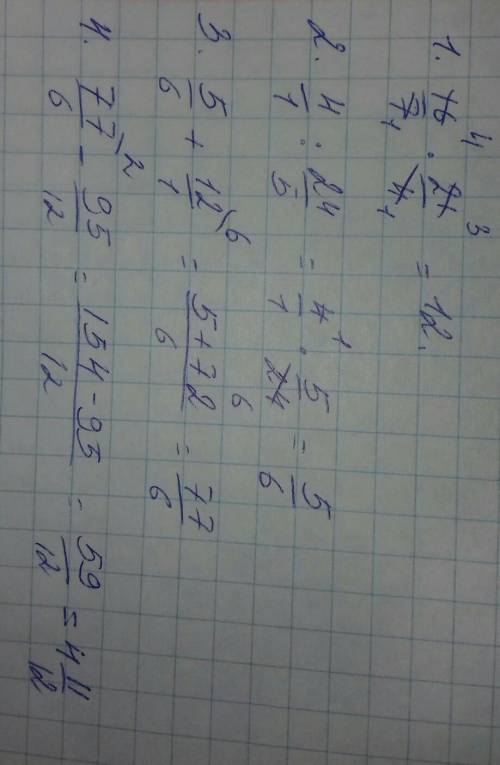 1. 16/7 · 21/4 = 12.
2. 4/1 : 24/5 = 4/1 · 5/24 = 5/6
3. 5/6 + 12/1 = 5+72/6 = 77/6
4. 77/6 - 95/12 = 154-95/12 = 59/12 = 4 11/12